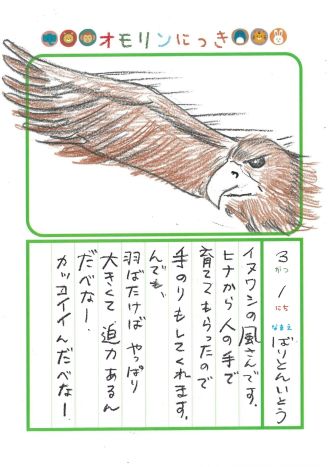 オモリンにっき
3がつ1にち なまえ ばりとんいとう
イヌワシの風さんです。
ヒナから人の手で
育ててもらったので
手のりもしてくれます。
んでも、
羽ばたけば やっぱり
大きくて 迫力あるん
だべなー。
カッコイイんだべなー。